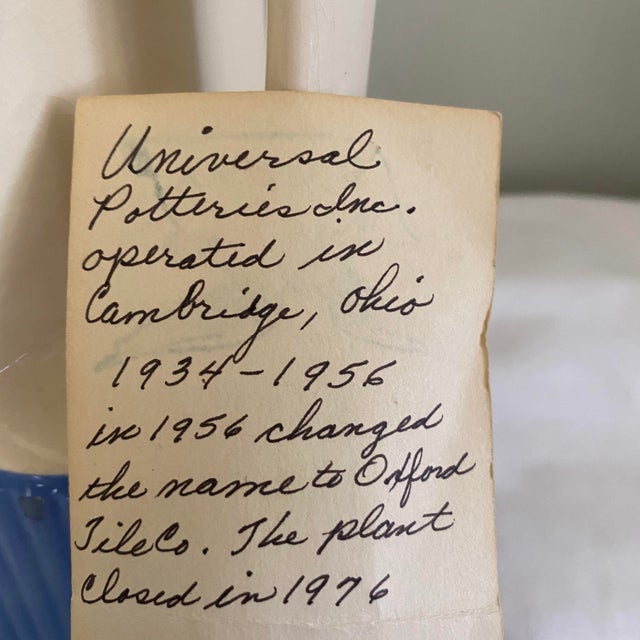 Universal
Potteries Inc.
operated in
Cambridge, Ohio
1934-1956
in 1956 changed
the name to Oxford
Tile Co. The plant
closed in 1976